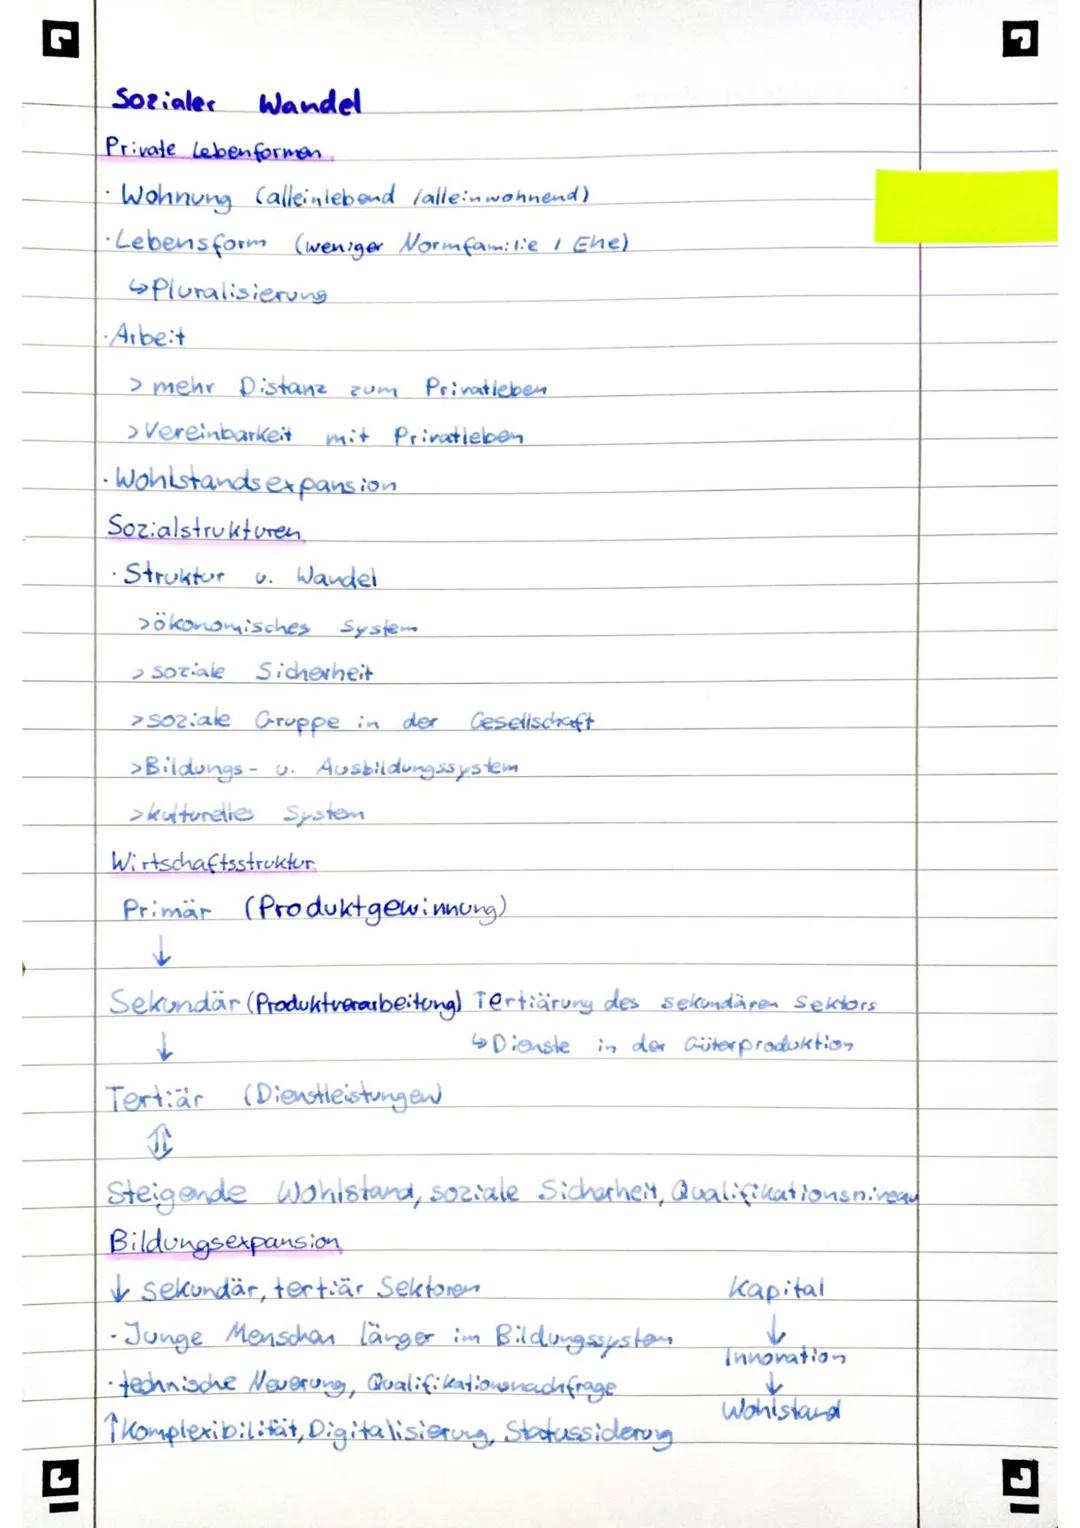 Sozialer Wandel
Private Lebenformen
· Wohnung (alleinlebend /alleinwohnend)
· Lebensform (weniger Normfamilie / Ehe)
↳ Pluralisierung
· Arbeit
> mehr Distanz zum Privatleben
> Vereinbarkeit mit Privatleben
· Wohlstandsexpansion
Sozialstrukturen
· Struktur u. Wandel
> ökonomisches System
> soziale Sicherheit
> soziale Gruppe in der Gesellschaft
> Bildungs- u. Ausbildungssystem
> kulturelles System
Wirtschaftsstruktur
Primär (Produktgewinnung)
↓
Sekundär (Produktverarbeitung) Tertiärung des sekundären Sektors
↓ ↳ Dienste in der Güterproduktion
Tertiär (Dienstleistungen)
⇅
Steigende Wohlstand, soziale Sicherheit, Qualifikationsniveau
Bildungsexpansion
↓ sekundär, tertiär Sektoren
· Junge Menschen länger im Bildungssystem
· technische Neuerung, Qualifikationsnachfrage
↑ Komplexibilität, Digitalisierung, Statussiderung
Kapital
↓
Innovation
↓
Wohlstand